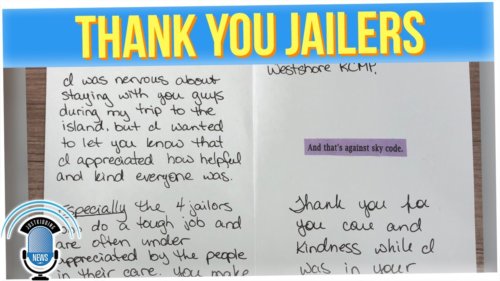 THANK YOU JAILERS
I was nervous about
staying with you guys
during my trip to the
island, but I wanted
to let you know that
I appreciated how helpful
and kind everyone was.
Especially the 4 jailors
do a tough job and
are often under
appreciated by the people
in their care. You make
Westshore RCMP,
And that's against sky code.
Thank you for
you care and
kindness while I
was in your
JUSTKIDDING
NEWS